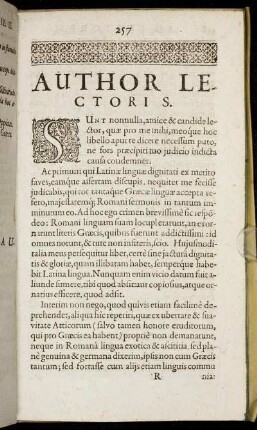 257
AUTHOR LE-
CTORI S.
SUNT nonnulla, amice & candide le-
ctor, quæ pro me mihi, meoque hoc
libello apud te dicere necessum puto,
ne fors præcipiti tuo judicio indicta
causa condemner.
Ac primum qui Latinæ linguæ dignitati ex merito
faves, eamque assertam discupis, nequitet me fecisse
judicabis, qui tot tantaque Græcæ linguæ accepta re-
fero, majestatemque Romani sermonis in tantum im-
minutum eo. Ad hoc ego crimen brevissimè sic respõ-
deo: Romani linguam suam locupletarunt, an exor-
narunt literis Græcis, quibus fuerunt addictissimi: id
omnes norunt, & tute non insiteris, scio. Hujusmodi
italia meus persequitur liber, certè sine jactura dignita-
tis & gloriæ, quam illibatam habet, semperque habe-
bit Latina lingua. Nunquam enim vicio datum fuit a-
liunde sumere, tibi quod absit aut copiosius, atque or-
natius efficere, quod adsit.
Interim non nego, quod quivis etiam facilimè de-
prehendet, aliqua hic reperiri, quæ ex ubertate & sua-
vitate Atticorum (salvo tamen honore eruditorum,
qui pro Græcis ea habent) propriè non demanarunt,
neque in Romanâ lingua exotica & aicititia, sed pla-
nè genuina & germana dixerim, ipsis non cum Græcis
tantum; sed fortasse cum alijs etiam linguis commu
R
nia: